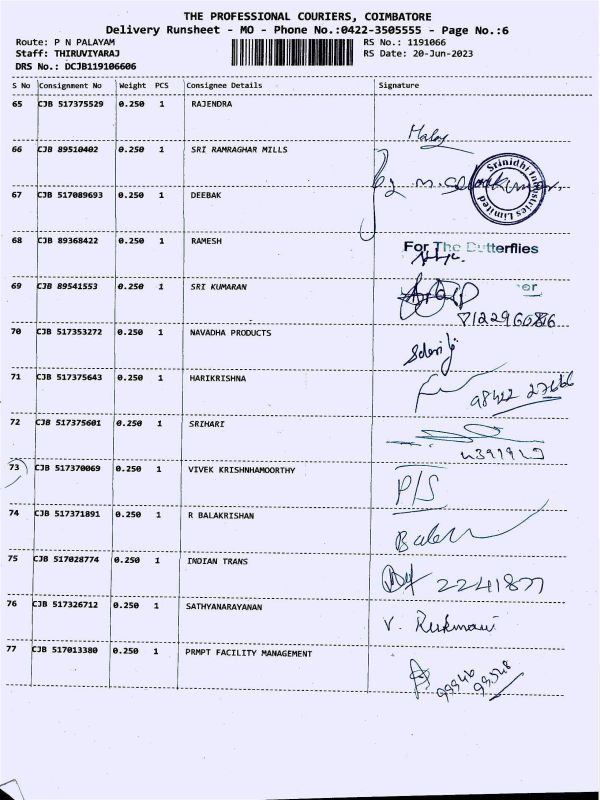 THE PROFESSIONAL COURIERS, COIMBATORE
Delivery Runsheet - MO - Phone No.:0422-3505555 - Page No.:6
Route: P N PALAYAM RS No.: 1191066
Staff: THIRUVIYARAJ RS Date: 20-Jun-2023
DRS No.: DCJB119106606
S No Consignment No Weight PCS Consignee Details Signature
65 CJB 517375529 0.250 1 RAJENDRA
66 CJB 89510402 0.250 1 SRI RAMRAGHAR MILLS
Srinidhi Industries Limited
67 CJB 517089693 0.250 1 DEEBAK
68 CJB 89368422 0.250 1 RAMESH
For The Butterflies
69 CJB 89541553 0.250 1 SRI KUMARAN
70 CJB 517353272 0.250 1 NAVADHA PRODUCTS
71 CJB 517375643 0.250 1 HARIKRISHNA
72 CJB 517375601 0.250 1 SRIHARI
73 CJB 517370069 0.250 1 VIVEK KRISHNHAMOORTHY
P/S
74 CJB 517371891 0.250 1 R BALAKRISHAN
75 CJB 517028774 0.250 1 INDIAN TRANS
76 CJB 517326712 0.250 1 SATHYANARAYANAN
V. Rukmani
77 CJB 517013380 0.250 1 PRMPT FACILITY MANAGEMENT